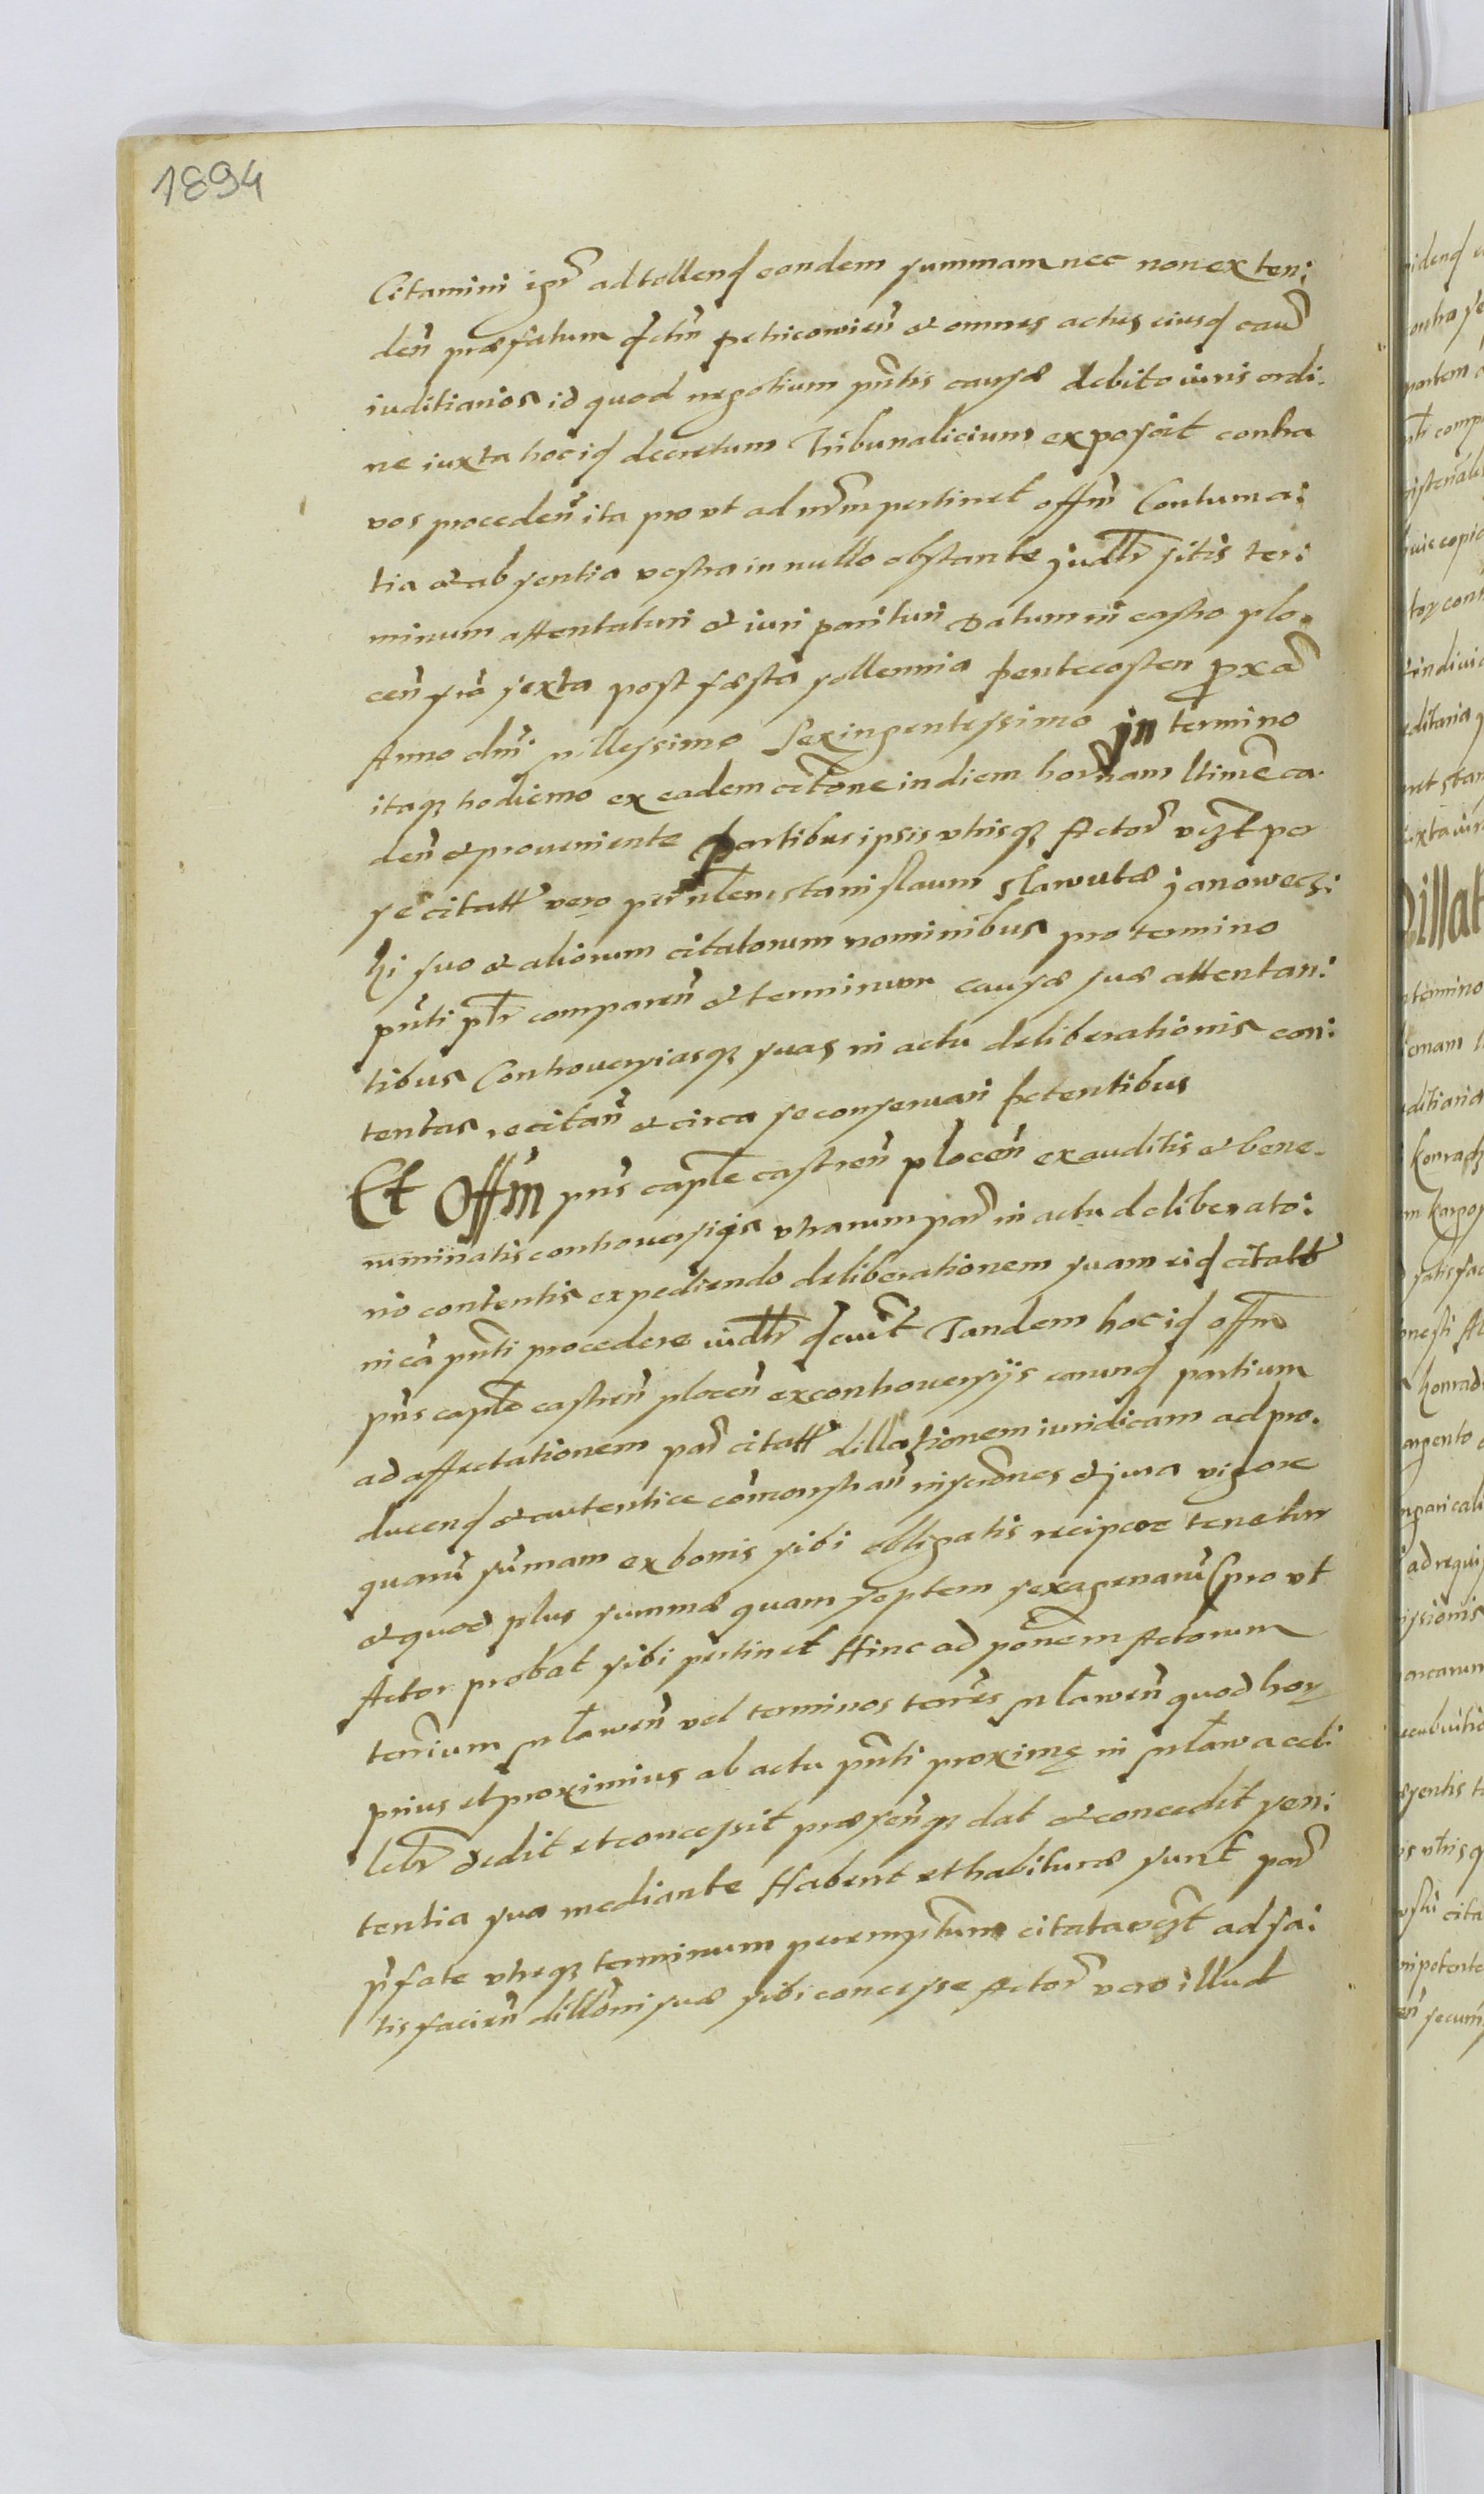 1894
Citamini igr̃ ad tollend eandem summam nec non exten:
den̄ præfatum petricowien̄ & omnes actus eiusd cau͂
iuditiarios id quod negotium pn̄tis causæ debito iuris ordi.
ne iuxta hoc id decretum Tribunalicium exposcit contra
vos proceden̄ ita pro ut ad nr̄m pertinet offm̄ Contuma:
tia & absentia vestra in nullo obstante judlr̄ sitis ter:
minum attentaturi & iuri parituri Datum in castro plo.
cen̄ fria sexta post fæsta sollennia pentecosten pxa
Anno dni millessimo Sexingentessimo in termino
itaq; hodierno ex eadem citone in diem hodiernam ca.
den̄ & proveniente partibus ipsis utrisq; Actor̄ vꝫt per
se citatt vero per Stanislaum Slawutæ Janowecz:
ki suo & aliorum citatorum nominibus pro termino
pn̄ti plr̄ comparen̄ & terminum causæ suæ attentan:
tibus Controversiasq; suas in actu deliberationis con:
tentas recitan̄ & circa se conservari petentibus
Et Offm̄ pn̄s caplē castren̄ plocen̄ exauditis & bene.
ruminatis controversijs utrarum par̄ in actu deliberato:
rio contentis expediendo deliberationem suam eid citatt
in cā pn̄ti procedere iudlr̄ Tandem hoc id offm̄
pn̄s caplē castren̄ plocen̄ ex controversijs earund partium
ad affectationem par̄ citatt dillationem iuridicam ad pro.
ducend & autentice com̄onstran̄ inscrōnes & jura vigore
quaru sūmam ex bonis sibi obligatis recipere tenetur
& quod plus summæ quam septem sexagenaru pro ut
Actor probat sibi pertinet Hinc ad pōnem Actorum
terr̄ium mlawen̄ vel terminos terr̄es mlawen̄ quod hor
prius et proximius ab actu pn̄ti proximę in mlawa cele:
lebr̄ dedit et concessit præsenq; dat & concedit sen:
tentia sua mediante Habent et habituræ sunt par̄
pfate utreq; terminum peremptum citata vꝫt ad sa:
tisfacien̄ dillōni suæ sibi concessæ Actor̄ vero illud